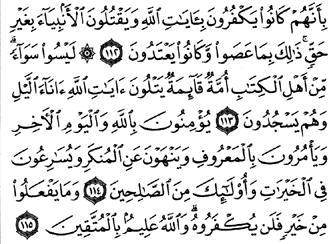 بِأَنَّهُمْ كَانُوا۟ يَكْفُرُونَ بِـَٔايَٰتِ ٱللَّهِ وَيَقْتُلُونَ ٱلْأَنۢبِيَآءَ بِغَيْرِ
حَقٍّ ۚ ذَٰلِكَ بِمَا عَصَوا۟ وَّكَانُوا۟ يَعْتَدُونَ ١١٢ ۞ لَيْسُوا۟ سَوَآءً ۗ
مِّنْ أَهْلِ ٱلْكِتَٰبِ أُمَّةٌ قَآئِمَةٌ يَتْلُونَ ءَايَٰتِ ٱللَّهِ ءَانَآءَ ٱلَّيْلِ
وَهُمْ يَسْجُدُونَ ١١٣ يُؤْمِنُونَ بِٱللَّهِ وَٱلْيَوْمِ ٱلْءَاخِرِ
وَيَأْمُرُونَ بِٱلْمَعْرُوفِ وَيَنْهَوْنَ عَنِ ٱلْمُنكَرِ وَيُسَٰرِعُونَ
فِى ٱلْخَيْرَٰتِ وَأُو۟لَٰٓئِكَ مِنَ ٱلصَّٰلِحِينَ ١١٤ وَمَا يَفْعَلُوا۟
مِنْ خَيْرٍ فَلَن يُكْفَرُوهُ ۗ وَٱللَّهُ عَلِيمٌۢ بِٱلْمُتَّقِينَ ١١٥